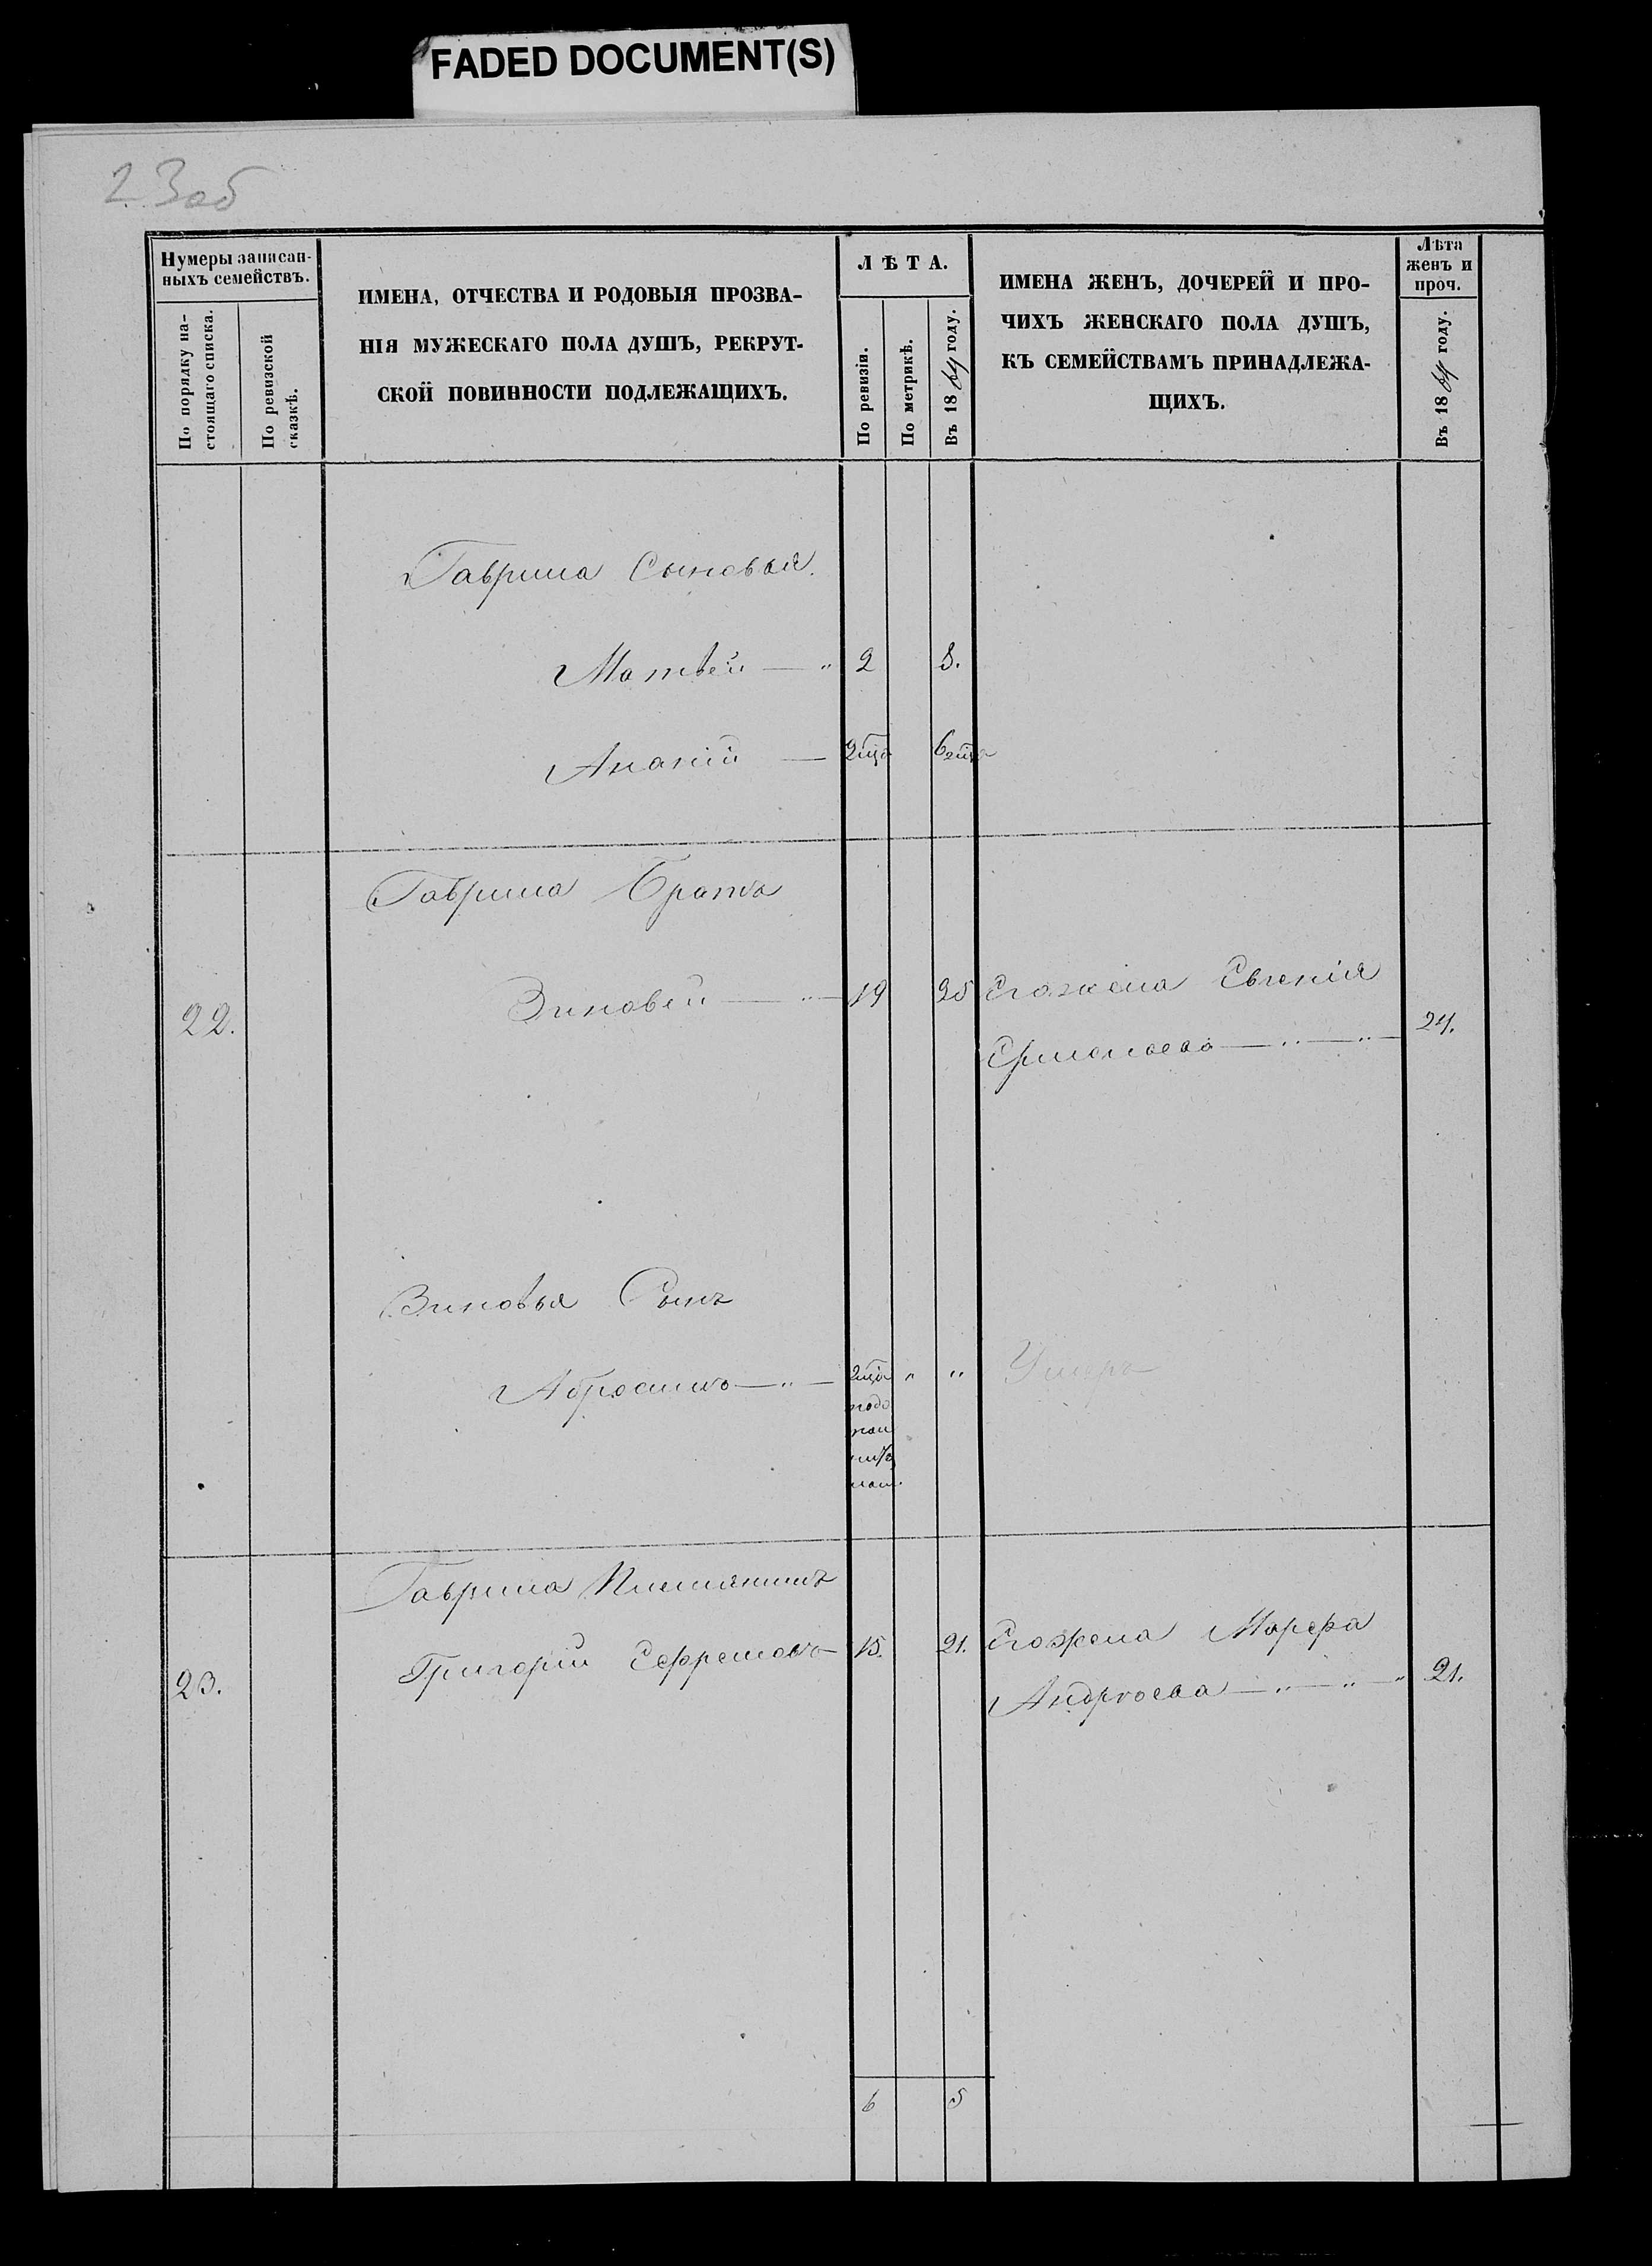 FADED DOCUMENT(S)
23 об
Нумеры записан-
ныхъ семействъ.
По порядку на-
стоящаго списка.
По ревизской
сказкѣ.
ИМЕНА, ОТЧЕСТВА И РОДОВЫЯ ПРОЗВА-
НІЯ МУЖЕСКАГО ПОЛА ДУШЪ, РЕКРУТ-
СКОЙ ПОВИННОСТИ ПОДЛЕЖАЩИХЪ.
ЛѢТА.
По ревизіи.
По метрикѣ.
Въ 1864 году.
ИМЕНА ЖЕНЪ, ДОЧЕРЕЙ И ПРО-
ЧИХЪ ЖЕНСКАГО ПОЛА ДУШЪ,
КЪ СЕМЕЙСТВАМЪ ПРИНАДЛЕЖА-
ЩИХЪ.
Лѣта
женъ и
проч.
Въ 1864 году.
Гаврила Сыновья.
Матвей — " 2 8.
Ананій — 2 мца 6 2 мца
Гаврила Братъ
22. Зиновей — " — 19 25 Его жена Евгенія
Ермолаева — " — " — 24.
Зиновья Сынъ
Абросимъ — " — 2 мца " " Умеръ
Гаврила Племянникъ
23. Григорій Ефремовъ 15. 21. Его жена Марфа
Андреева — " — " — " 21.
6 5